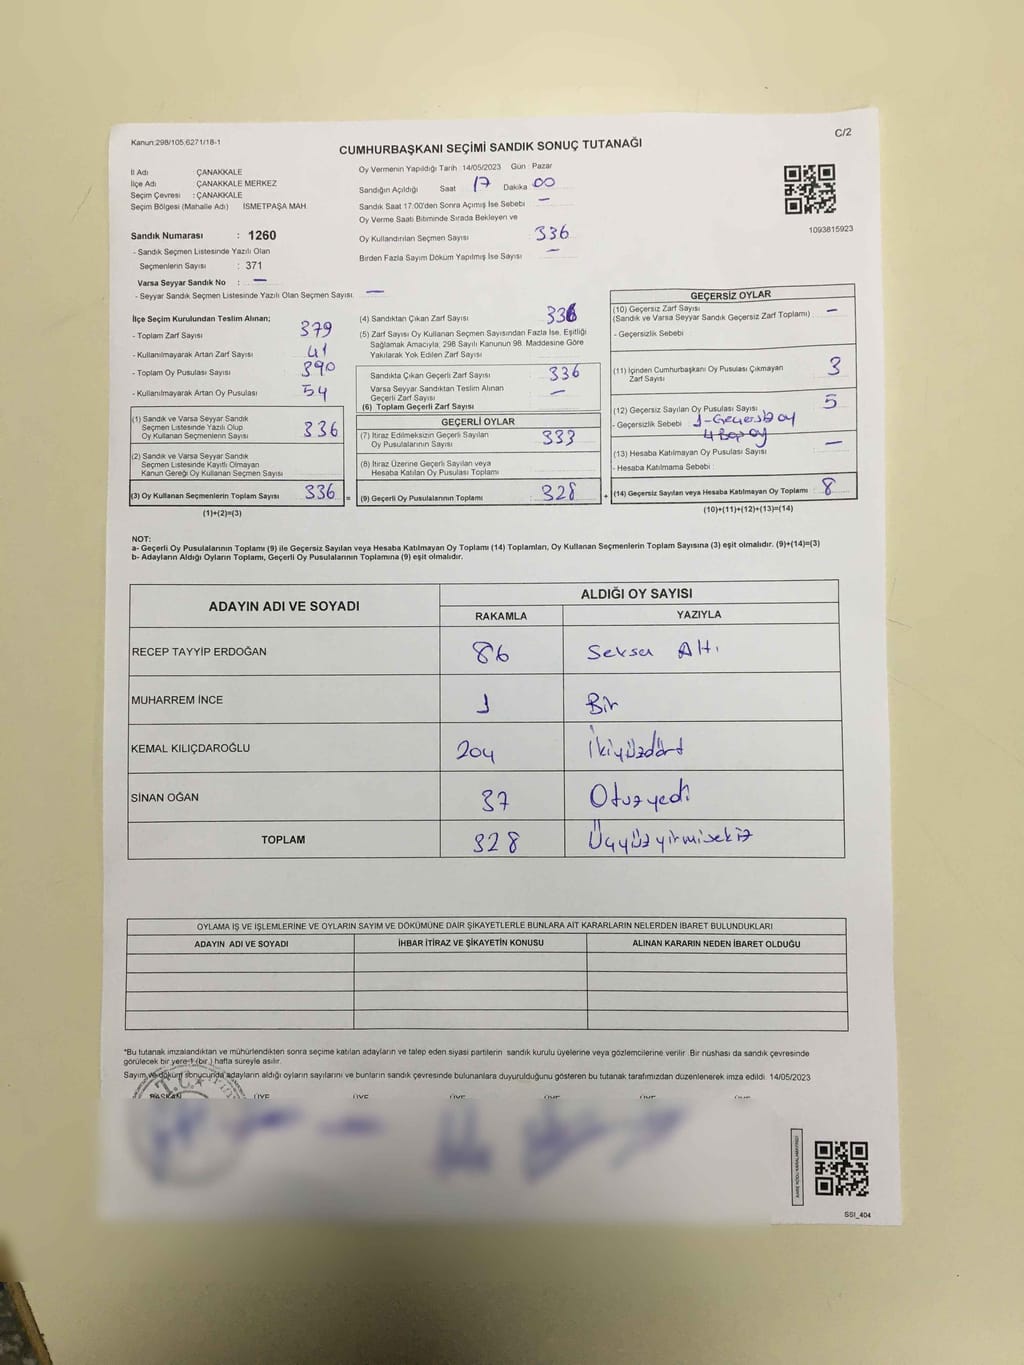 Kanun:298/105,6271/18-1
C/2
CUMHURBAŞKANI SEÇİMİ SANDIK SONUÇ TUTANAĞI
İl Adı ÇANAKKALE
İlçe Adı ÇANAKKALE MERKEZ
Seçim Çevresi : ÇANAKKALE
Seçim Bölgesi (Mahalle Adı) İSMETPAŞA MAH.
Sandık Numarası : 1260
- Sandık Seçmen Listesinde Yazılı Olan
Seçmenlerin Sayısı : 371
Varsa Seyyar Sandık No : —
- Seyyar Sandık Seçmen Listesinde Yazılı Olan Seçmen Sayısı: —
Oy Vermenin Yapıldığı Tarih : 14/05/2023 Gün : Pazar
Sandığın Açıldığı Saat 17 Dakika 00
Sandık Saat 17:00'den Sonra Açımış İse Sebebi —
Oy Verme Saati Bitiminde Sırada Bekleyen ve
Oy Kullandırılan Seçmen Sayısı 336
Birden Fazla Sayım Döküm Yapılmış İse Sayısı —
1093815923
İlçe Seçim Kurulundan Teslim Alınan;
- Toplam Zarf Sayısı 379
- Kullanılmayarak Artan Zarf Sayısı 41
- Toplam Oy Pusulası Sayısı 390
- Kullanılmayarak Artan Oy Pusulası 54
(1) Sandık ve Varsa Seyyar Sandık
Seçmen Listesinde Yazılı Olup
Oy Kullanan Seçmenlerin Sayısı 336
(2) Sandık ve Varsa Seyyar Sandık
Seçmen Listesinde Kayıtlı Olmayan
Kanun Gereği Oy Kullanan Seçmen Sayısı
(3) Oy Kullanan Seçmenlerin Toplam Sayısı 336 =
(1)+(2)=(3)
(4) Sandıktan Çıkan Zarf Sayısı 336
(5) Zarf Sayısı Oy Kullanan Seçmen Sayısından Fazla İse, Eşitliği
Sağlamak Amacıyla, 298 Sayılı Kanunun 98. Maddesine Göre
Yakılarak Yok Edilen Zarf Sayısı
Sandıkta Çıkan Geçerli Zarf Sayısı 336
Varsa Seyyar Sandıktan Teslim Alınan
Geçerli Zarf Sayısı —
(6) Toplam Geçerli Zarf Sayısı
GEÇERLİ OYLAR
(7) İtiraz Edilmeksizin Geçerli Sayılan
Oy Pusulalarının Sayısı 333
(8) İtiraz Üzerine Geçerli Sayılan veya
Hesaba Katılan Oy Pusulası Toplamı
(9) Geçerli Oy Pusulalarının Toplamı 328 +
GEÇERSİZ OYLAR
(10) Geçersiz Zarf Sayısı
(Sandık ve Varsa Seyyar Sandık Geçersiz Zarf Toplamı) —
- Geçersizlik Sebebi
(11) İçinden Cumhurbaşkanı Oy Pusulası Çıkmayan
Zarf Sayısı 3
(12) Geçersiz Sayılan Oy Pusulası Sayısı 5
- Geçersizlik Sebebi
(13) Hesaba Katılmayan Oy Pusulası Sayısı —
- Hesaba Katılmama Sebebi
(14) Geçersiz Sayılan veya Hesaba Katılmayan Oy Toplamı 8
(10)+(11)+(12)+(13)=(14)
NOT:
a- Geçerli Oy Pusulalarının Toplamı (9) ile Geçersiz Sayılan veya Hesaba Katılmayan Oy Toplamı (14) Toplamları, Oy Kullanan Seçmenlerin Toplam Sayısına (3) eşit olmalıdır. (9)+(14)=(3)
b- Adayların Aldığı Oyların Toplamı, Geçerli Oy Pusulalarının Toplamına (9) eşit olmalıdır.
ADAYIN ADI VE SOYADI
ALDIĞI OY SAYISI
RAKAMLA YAZIYLA
RECEP TAYYİP ERDOĞAN 86 Seksen Altı
MUHARREM İNCE 1 Bir
KEMAL KILIÇDAROĞLU 204 İkiyüzdört
SİNAN OĞAN 37 Otuzyedi
TOPLAM 328 Üçyüzyirmisekiz
OYLAMA İŞ VE İŞLEMLERİNE VE OYLARIN SAYIM VE DÖKÜMÜNE DAİR ŞİKAYETLERLE BUNLARA AİT KARARLARIN NELERDEN İBARET BULUNDUKLARI
ADAYIN ADI VE SOYADI İHBAR İTİRAZ VE ŞİKAYETİN KONUSU ALINAN KARARIN NEDEN İBARET OLDUĞU
*Bu tutanak imzalandıktan ve mühürlendikten sonra seçime katılan adayların ve talep eden siyasi partilerin sandık kurulu üyelerine veya gözlemcilerine verilir. Bir nüshası da sandık çevresinde
görülecek bir yere 1 (bir ) hafta süreyle asılır.
Sayım ve döküm sonucunda adayların aldığı oyların sayılarını ve bunların sandık çevresinde bulunanlara duyurulduğunu gösteren bu tutanak tarafımızdan düzenlenerek imza edildi. 14/05/2023
T.C.
BAŞKAN ÜYE ÜYE ÜYE ÜYE ÜYE ÜYE
SSI_404